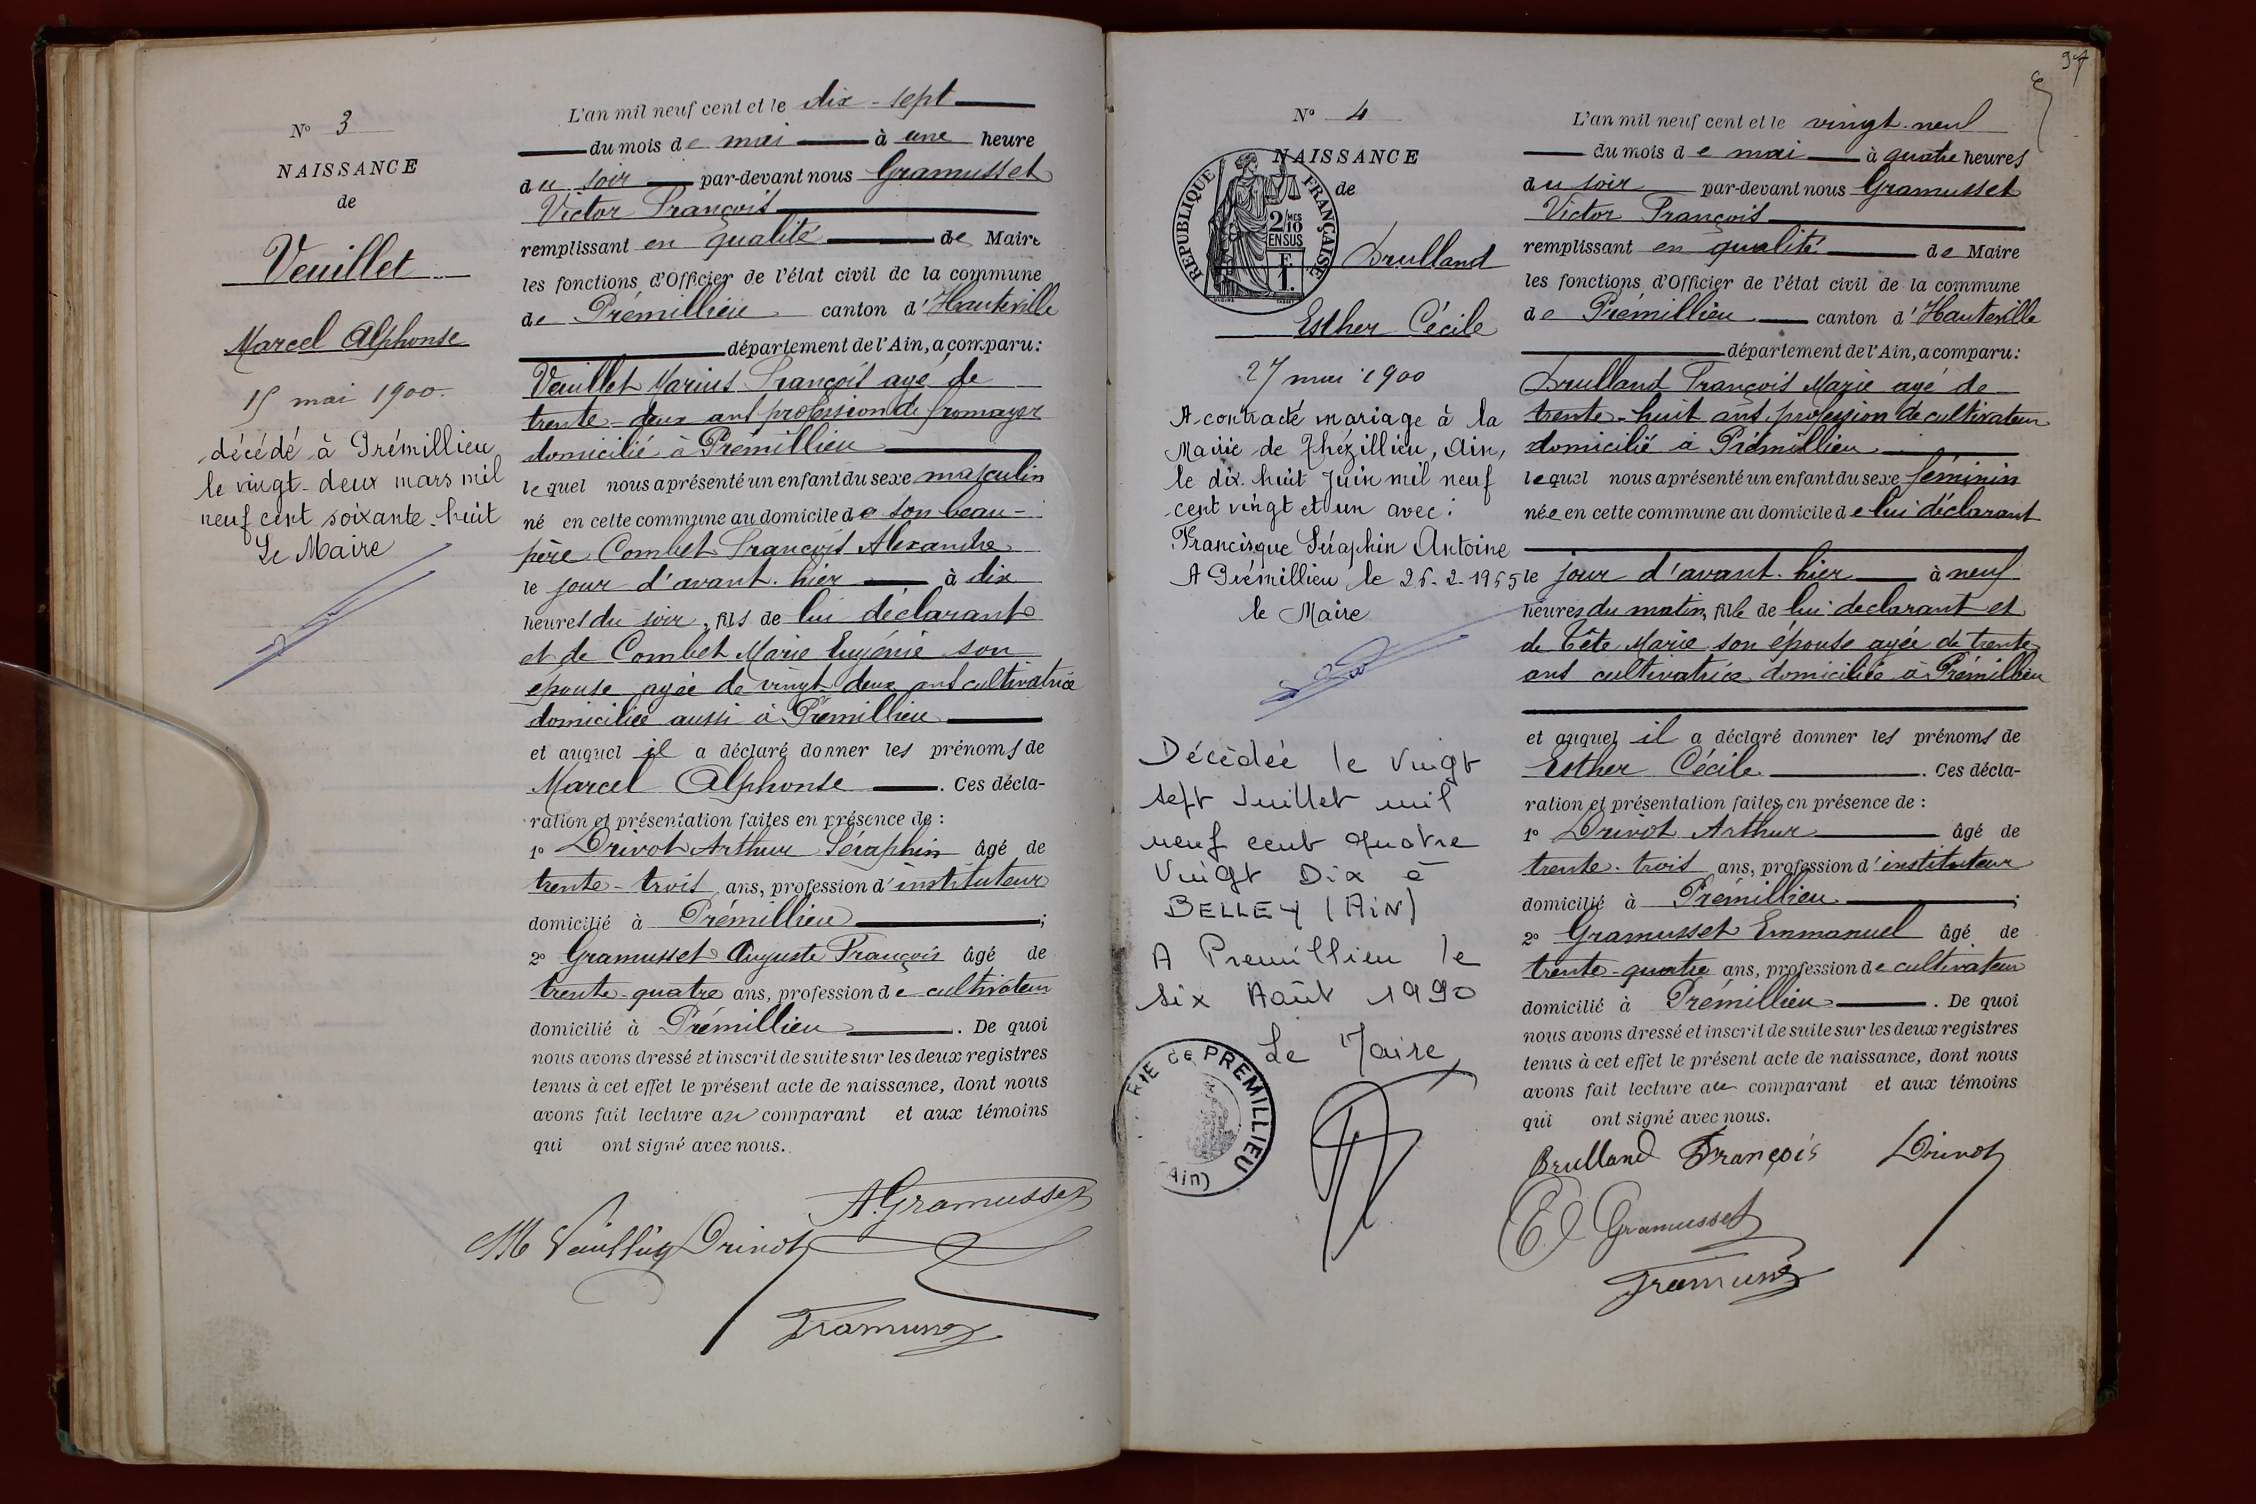 N° 3
NAISSANCE
de
Veuillet
Marcel Alphonse
15 mai 1900.
décédé à Prémillieu
le vingt-deux mars mil
neuf cent soixante-huit
Le Maire
L'an mil neuf cent et le dix-sept
du mois de mai à une heure
du soir par-devant nous Gramusset
Victor François
remplissant en qualité de Maire
les fonctions d'Officier de l'état civil de la commune
de Prémillieu canton d'Hauteville
département de l'Ain, a comparu:
Veuillet Marius François agé de
trente-deux ans profession de fromager
domicilié à Prémillieu
lequel nous a présenté un enfant du sexe masculin
né en cette commune au domicile de son beau-
père Combet François Alexandre
le jour d'avant-hier à dix
heures du soir, fils de lui déclarant
et de Combet Marie Eugénie son
épouse agée de vingt-deux ans cultivatrice
domiciliée aussi à Prémillieu
et auquel il a déclaré donner les prénoms de
Marcel Alphonse. Ces décla-
ration et présentation faites en présence de :
1° Drivot Arthur Séraphin âgé de
trente-trois ans, profession d'instituteur
domicilié à Prémillieu ;
2° Gramusset Auguste François âgé de
trente-quatre ans, profession de cultivateur
domicilié à Prémillieu. De quoi
nous avons dressé et inscrit de suite sur les deux registres
tenus à cet effet le présent acte de naissance, dont nous
avons fait lecture au comparant et aux témoins
qui ont signé avec nous.
A. Gramusset
M Veuillet Drivot
97
N° 4
NAISSANCE
de
RÉPUBLIQUE FRANÇAISE
2/10 MES
EN SUS
F
1.
Brulland
Esther Cécile
27 mai 1900
A contracté mariage à la
Mairie de Thézillieu, Ain,
le dix-huit Juin mil neuf
cent vingt et un avec :
Francisque Séraphin Antoine
A Prémillieu le 26-2-1955
le Maire
Décédée le Vingt
sept Juillet mil
neuf cent quatre
Vingt Dix à
BELLEY (AIN)
A Premillieu le
six Août 1990
Le Maire,
RIE de PREMILLIEU
(Ain)
L'an mil neuf cent et le vingt-neuf
du mois de mai à quatre heures
du soir par-devant nous Gramusset
Victor François
remplissant en qualité de Maire
les fonctions d'Officier de l'état civil de la commune
de Prémillieu canton d'Hauteville
département de l'Ain, a comparu:
Brulland François Marie agé de
trente-huit ans, profession de cultivateur
domicilié à Prémillieu
lequel nous a présenté un enfant du sexe féminin
née en cette commune au domicile de lui déclarant
le jour d'avant-hier à neuf
heures du matin, fille de lui déclarant et
de Tête Marie son épouse agée de trente
ans cultivatrice domiciliée à Prémillieu
et auquel il a déclaré donner les prénoms de
Esther Cécile. Ces décla-
ration et présentation faites en présence de :
1° Drivot Arthur âgé de
trente-trois ans, profession d'instituteur
domicilié à Prémillieu ;
2° Gramusset Emmanuel âgé de
trente-quatre ans, profession de cultivateur
domicilié à Prémillieu. De quoi
nous avons dressé et inscrit de suite sur les deux registres
tenus à cet effet le présent acte de naissance, dont nous
avons fait lecture au comparant et aux témoins
qui ont signé avec nous.
Brulland François Drivot
E Gramusset